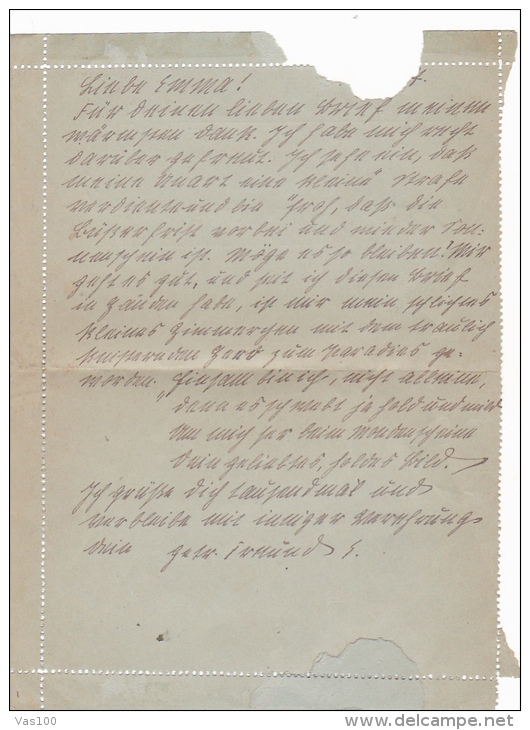 Liebe Emma!
Für deinen lieben Brief meinen
wärmsten Dank. Ich habe mich recht
darüber gefreut. Ich sehe ein, daß
meine Unart eine kleine Strafe
verdiente und bin froh, daß die
Bußefrist vorbei und wieder Son-
nenschein ist. Möge es so bleiben! Mir
geht es gut, und seit ich diesen Brief
in Händen habe, ist mir mein schlichtes
kleines Zimmerchen mit dem traulich
knisternden Herd zum Paradies ge-
worden. „Einsam bin ich, nicht alleine,
denn es schwebt ja hold und mild
Um mich her beim Mondenscheine
Dein geliebtes, holdes Bild.
Ich grüße dich tausendmal und
verbleibe mit inniger Verehrung
dein getr. Freund
Vas100
www.delcampe.net